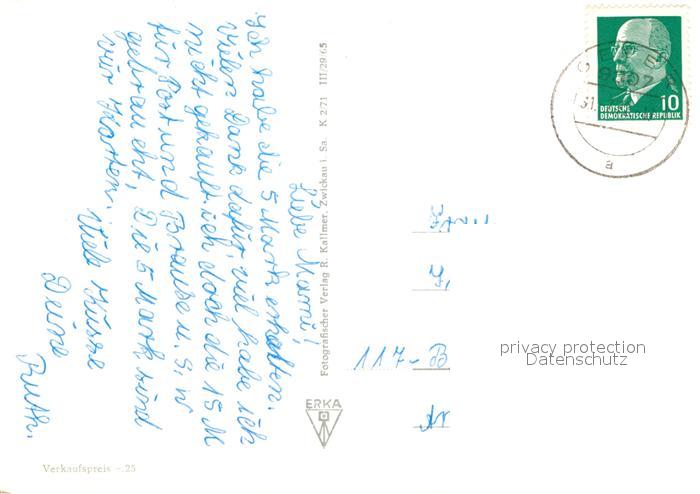 Liebe Mami!
Ich habe die 5 Mark erhalten.
Vielen Dank dafür, viel habe ich
nicht gekauft. ich doch die 15 M
für Post und Brause u. s. w
gebraucht. Die 5 Mark sind
vür Karten. Viele Küsse
Deine
Ruth.
Fotografischer Verlag R. Kallmer, Zwickau i. Sa. K 2/71 III/29/65
ERKA
Verkaufspreis -.25
10
DEUTSCHE
DEMOKRATISCHE REPUBLIK
31.
a
117-B
privacy protection
Datenschutz